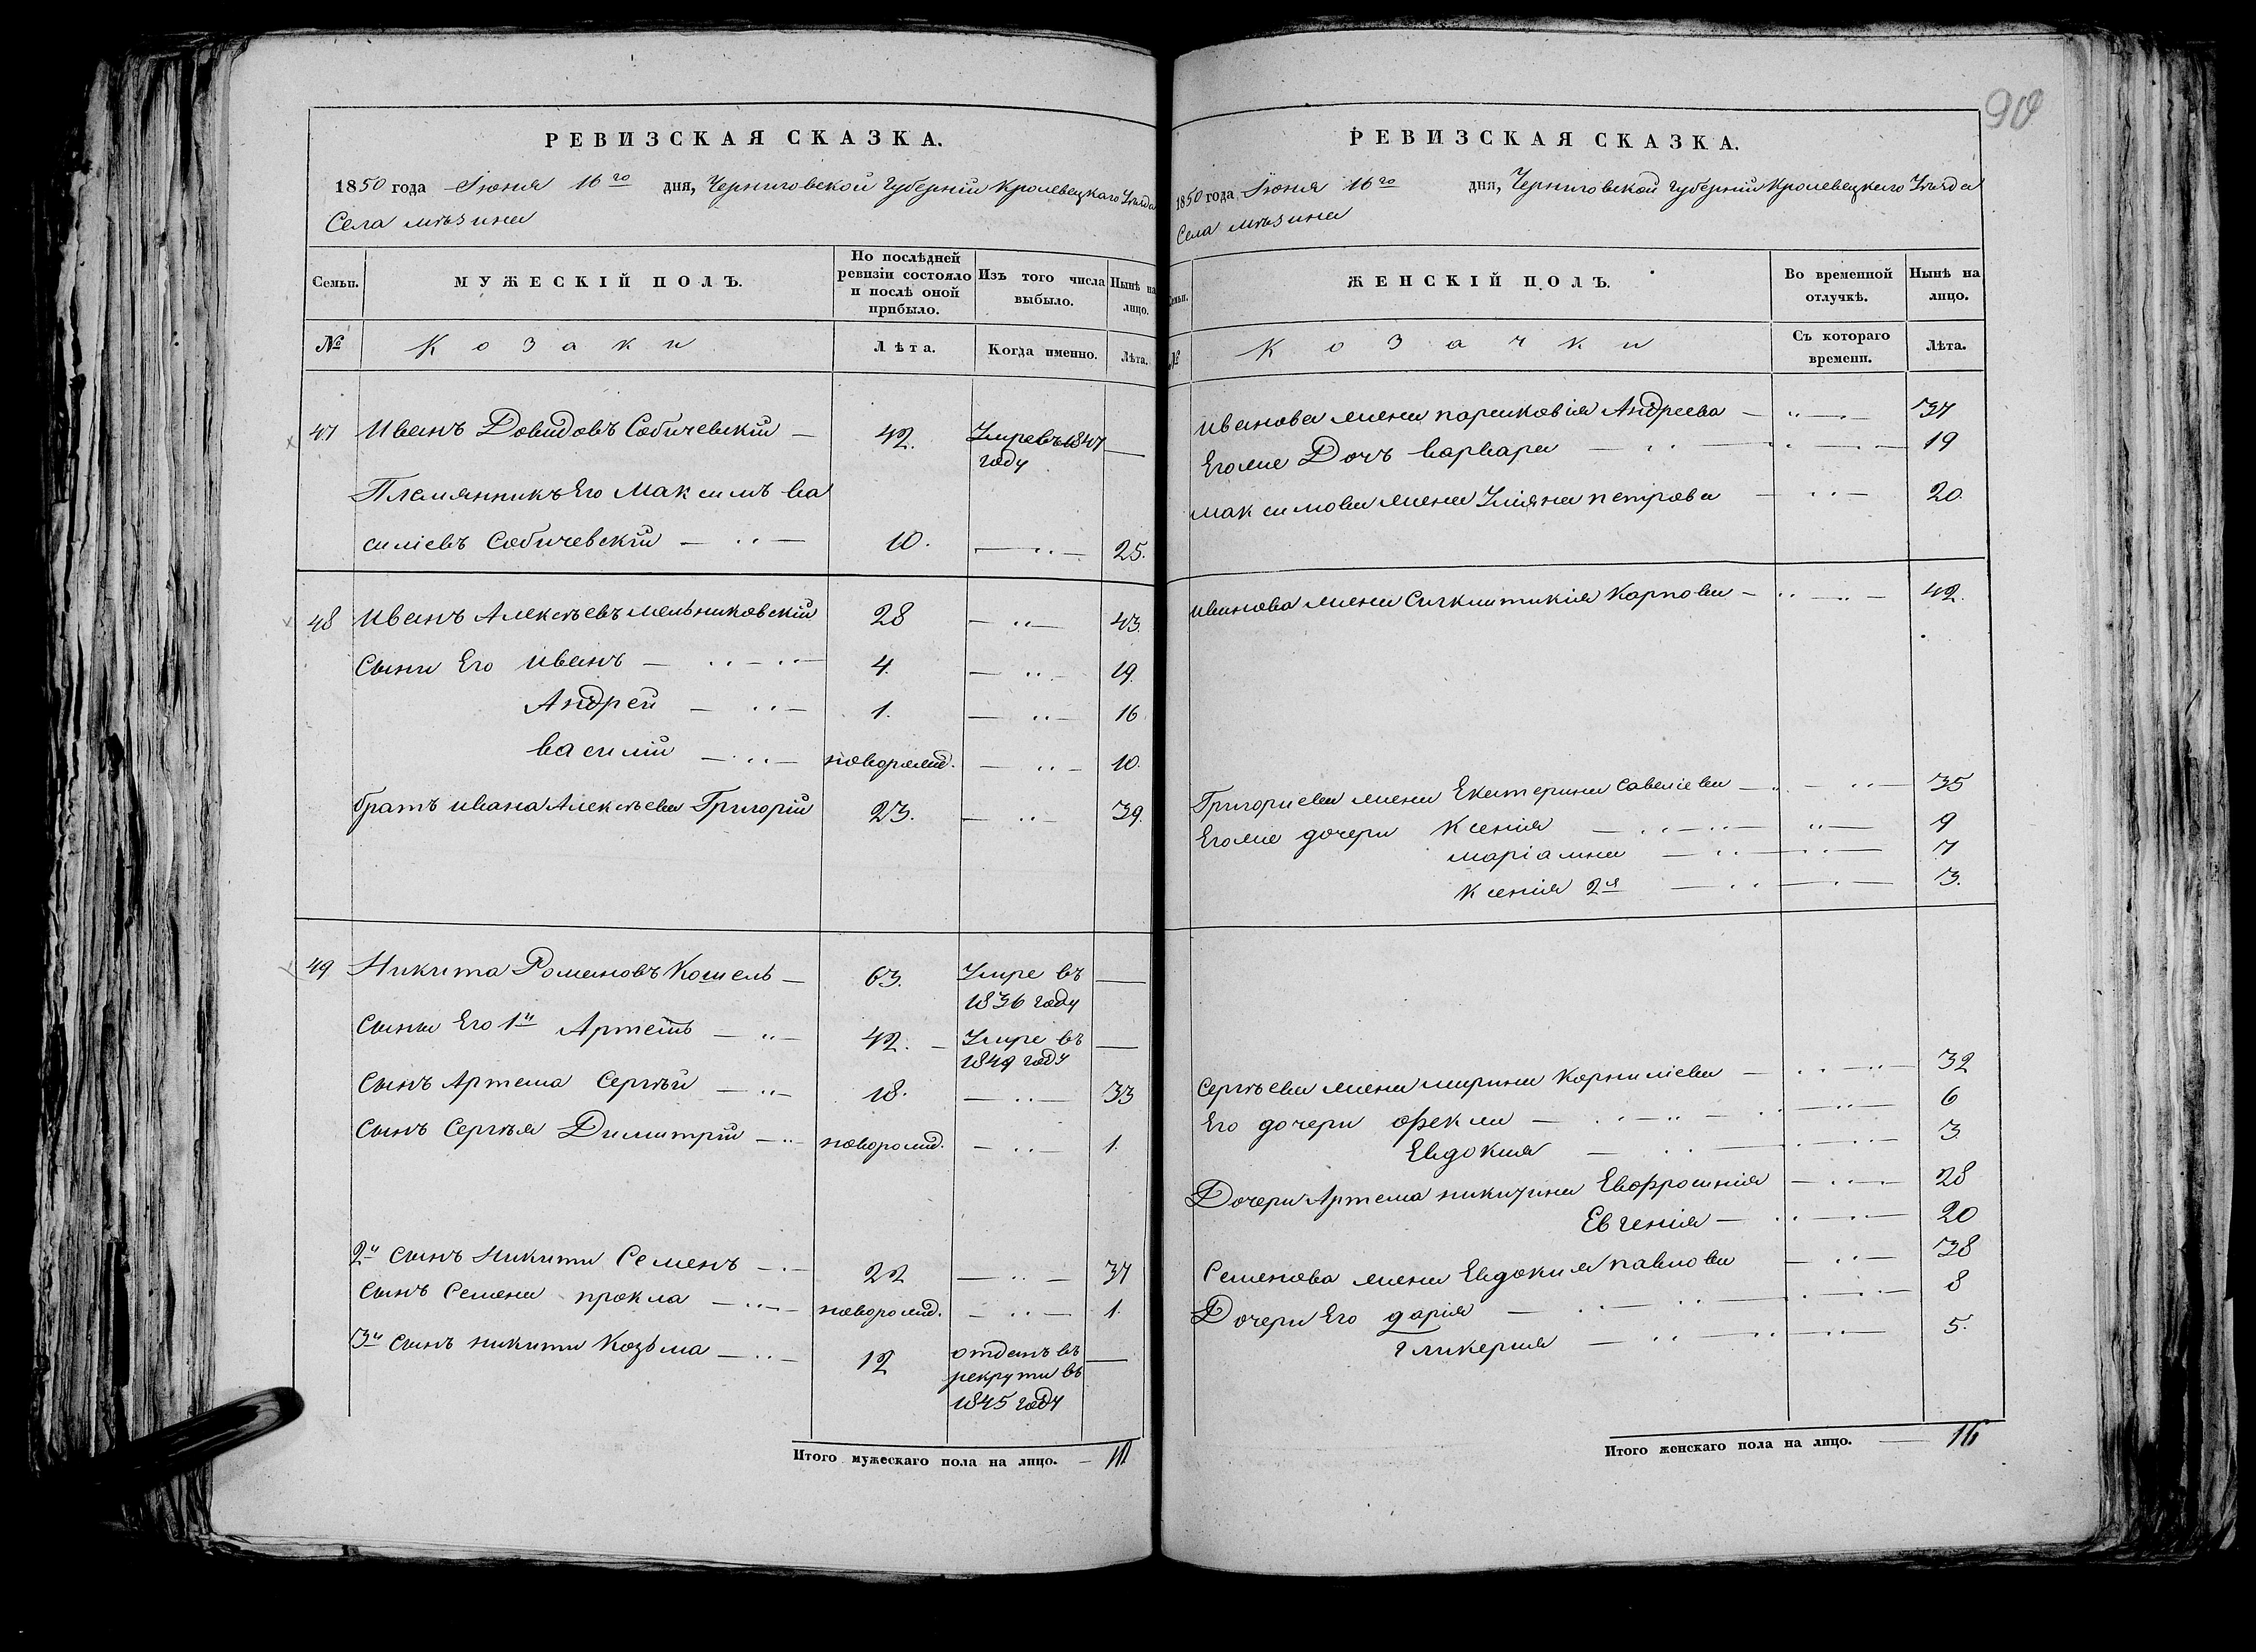 90
РЕВИЗСКАЯ СКАЗКА.
1850 года Іюня 16го дня, Черниговской Губерніи Кролевецкаго Уезда
Села мѣзина
Семьи. МУЖЕСКІЙ ПОЛЪ. По послѣдней ревизіи состояло и послѣ оной прибыло. Изъ того числа выбыло. Нынѣ на лицо.
№ Козаки Лѣта. Когда именно. Лѣта.
47 Иванъ Довидовъ Собичевскій — 42. Умре въ 1847 году —
Племянникъ Его Максимъ ва
силіевъ Собичевскій — 10. — 25.
48 Иванъ Алексѣевъ мельниковскій 28 — 43.
Сыни Его иванъ — 4. — 19.
Андрей — 1. — 16
василій — новорожд. — 10.
братъ ивана Алексѣева Григорій 23. — 39.
49 Никита Романовъ Кошель — 63. Умре въ 1836 году —
Сыны Его 1й Артемъ — 42. — Умре въ 1849 году —
Сынъ Артема Сергѣй — 18. — 33
Сынъ Сергѣя Димитрій — новорожд. — 1.
2й Сынъ Никити Семенъ — 22 — 37
Сынъ Семена прокла — новорожд. — 1.
3й Сынъ никити Козьма — 12 отданъ въ рекрути въ 1845 году —
Итого мужескаго пола на лицо. — 10
РЕВИЗСКАЯ СКАЗКА.
1850 года Іюня 16го дня, Черниговской Губерніи Кролевецкаго Уезда
Села мѣзина
Семьи. ЖЕНСКІЙ ПОЛЪ. Во временной отлучкѣ. Нынѣ на лицо.
№ Козачки Съ котораго времени. Лѣта.
иванова жена парасковія Андреева — 37
Егоже Дочь варвара — 19
максимова жена Уліяна петрова — 20.
иванова жена Карпова — 42.
Григориева жена Екатерина Савеліева — 35
Егоже дочери Ксенія — 9
маріамна — 7
Ксенія 2я — 3.
Сергѣева жена мирина Корниліева — 32
Его дочери Фекла — 6
Евдокия — 3.
Дочери Артема никитина Евфросинія — 28
Евгенія — 20
Семенова жена Евдокия павлова — 38
Дочери Его дарія — 8
гликерия — 5.
Итого женскаго пола на лицо. — 16